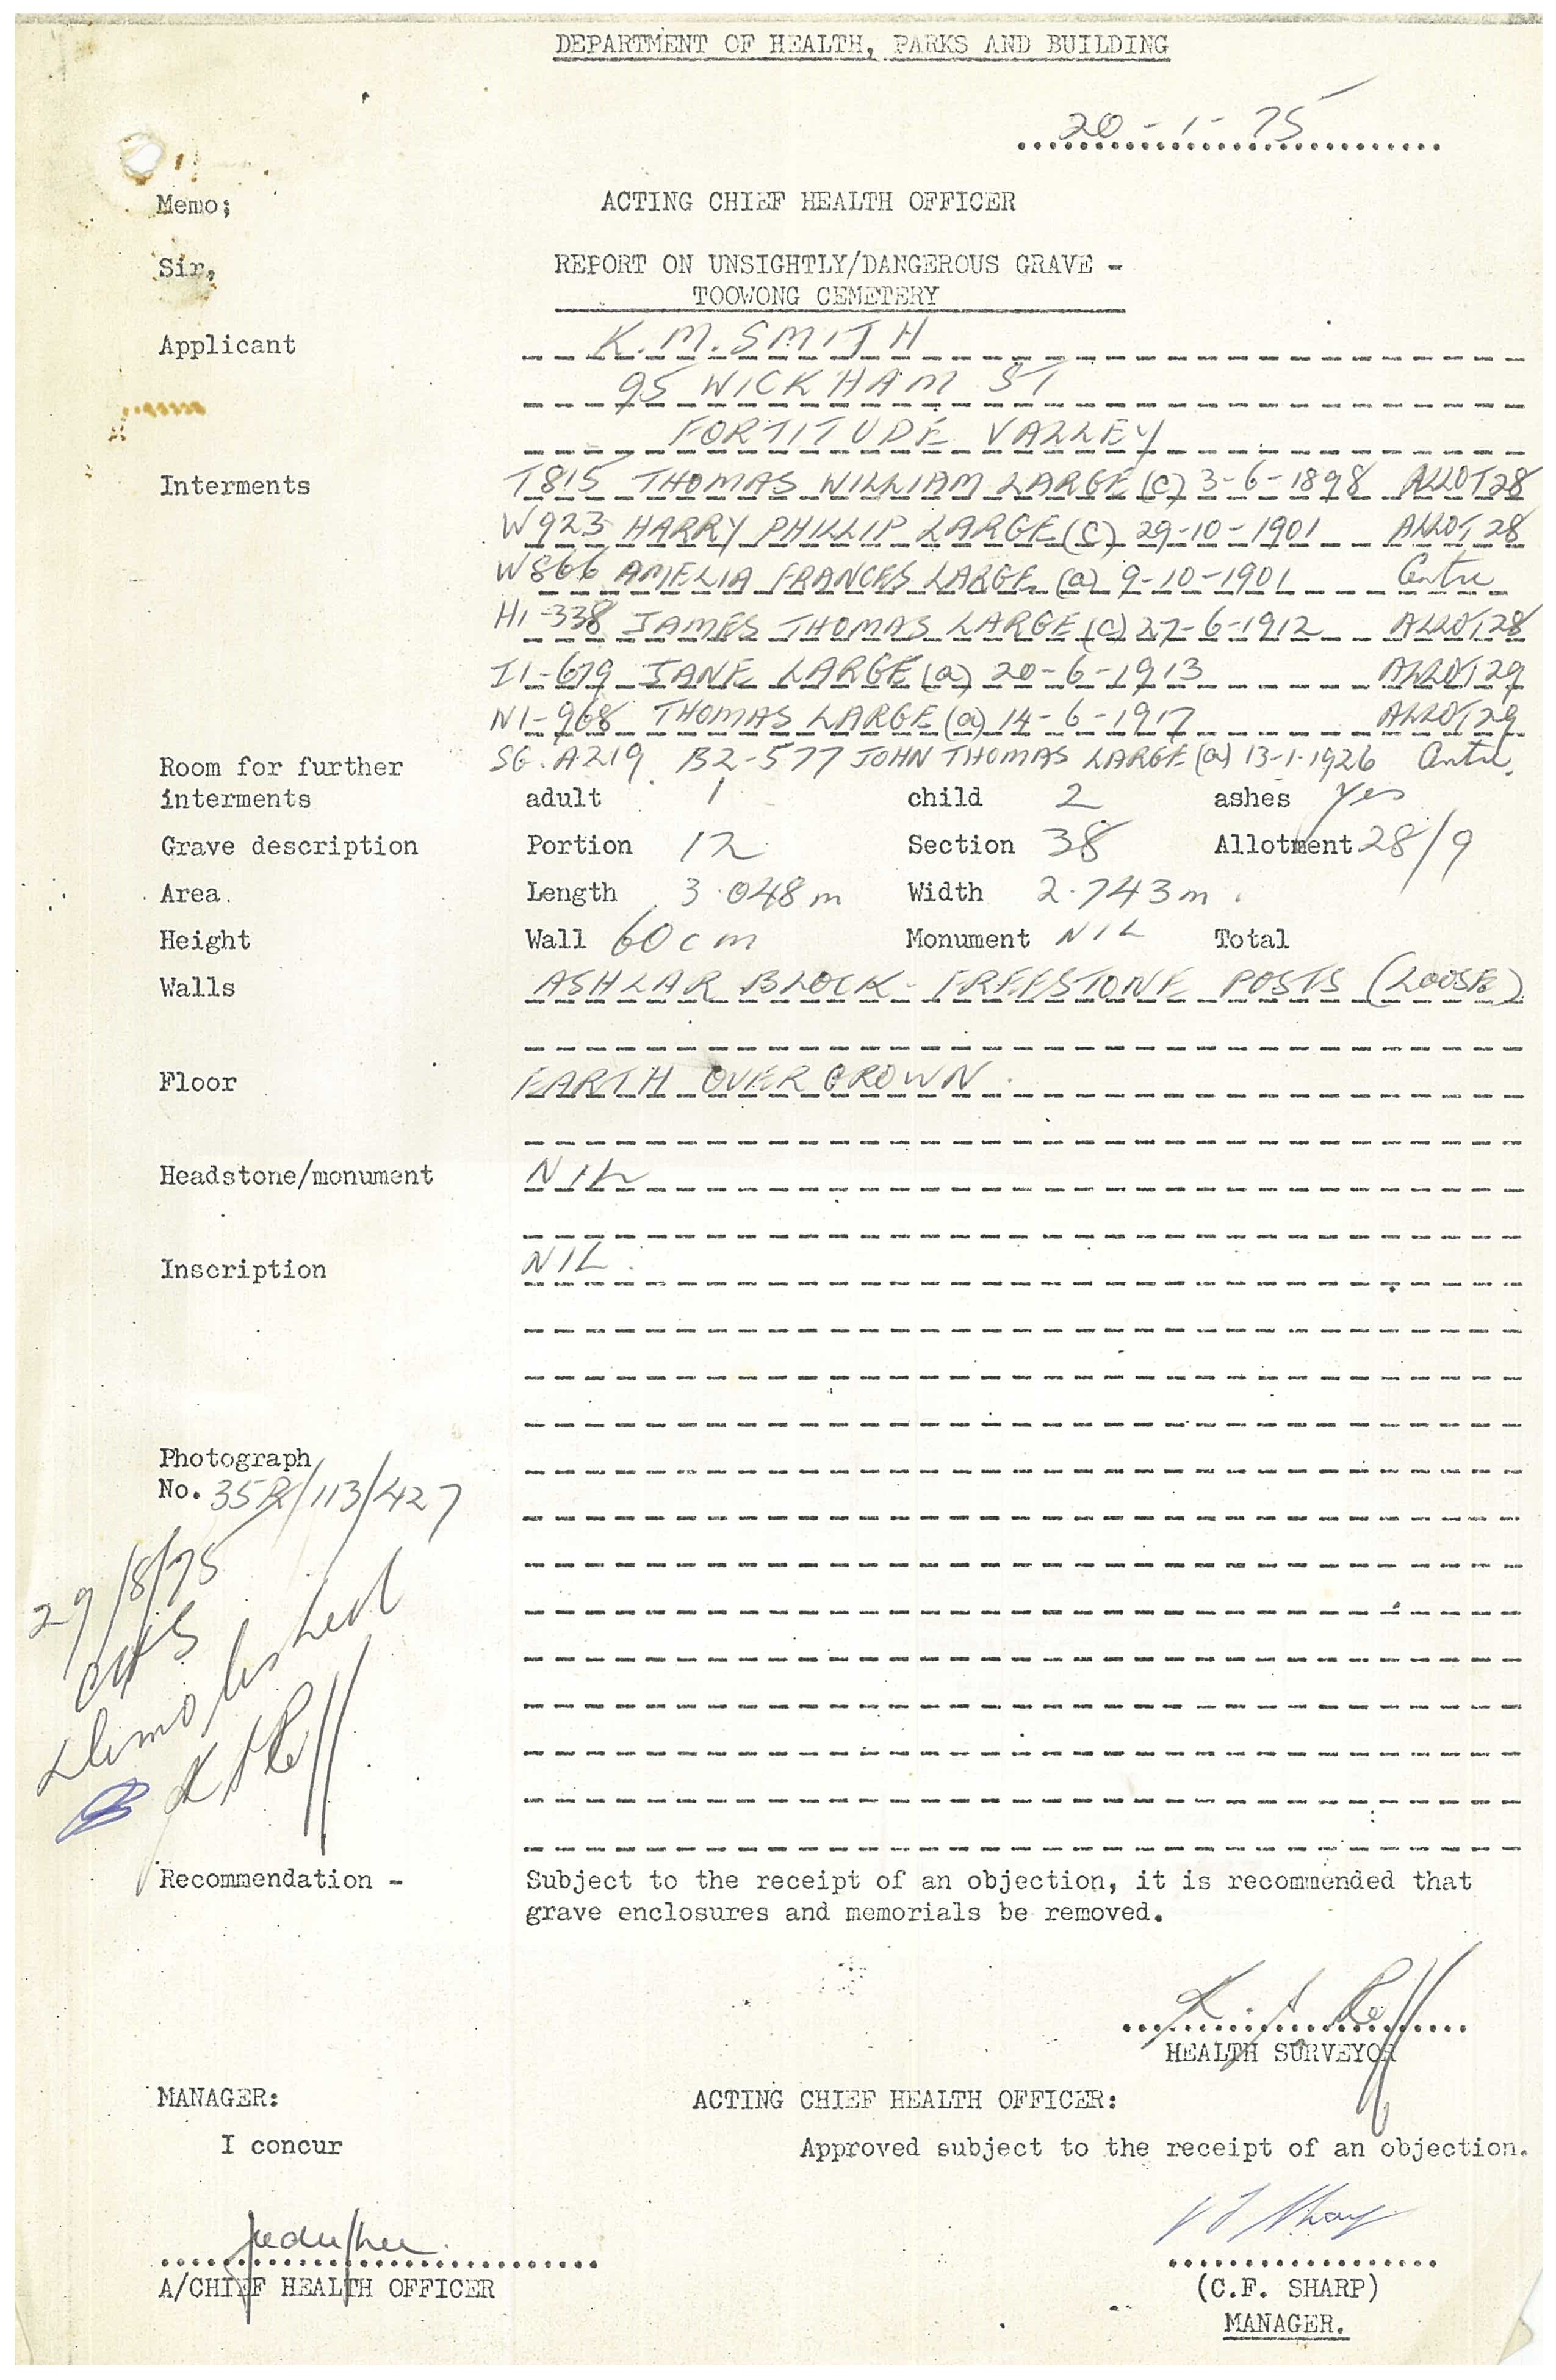 DEPARTMENT OF HEALTH, PARKS AND BUILDING
20-1-75
Memo; ACTING CHIEF HEALTH OFFICER
Sir, REPORT ON UNSIGHTLY/DANGEROUS GRAVE -
TOOWONG CEMETERY
Applicant K.M. SMITH
95 WICKHAM ST
FORTITUDE VALLEY
Interments T815 THOMAS WILLIAM LARGE (C) 3-6-1898 ALLOT 28
W923 HARRY PHILLIP LARGE (C) 29-10-1901 ALLOT 28
W866 AMELIA FRANCES LARGE (a) 9-10-1901 Centre
H1-338 JAMES THOMAS LARGE (C) 27-6-1912 ALLOT 28
I1-679 JANE LARGE (a) 20-6-1913 ALLOT 29
N1-968 THOMAS LARGE (a) 14-6-1917 ALLOT 29
SG. A219 B2-577 JOHN THOMAS LARGE (a) 13-1-1926 Centre.
Room for further
interments adult 1 child 2 ashes yes
Grave description Portion 12 Section 38 Allotment 28/9
Area. Length 3.048m Width 2.743m.
Height Wall 60cm Monument NIL Total
Walls ASHLAR BLOCK - FREESTONE POSTS (LOOSE)
Floor EARTH OVERGROWN.
Headstone/monument NIL
Inscription NIL.
Photograph
No. 35R/113/427
29/8/75
Demolished
Recommendation - Subject to the receipt of an objection, it is recommended that
grave enclosures and memorials be removed.
HEALTH SURVEYOR
MANAGER: ACTING CHIEF HEALTH OFFICER:
I concur Approved subject to the receipt of an objection.
A/CHIEF HEALTH OFFICER (C.F. SHARP)
MANAGER.